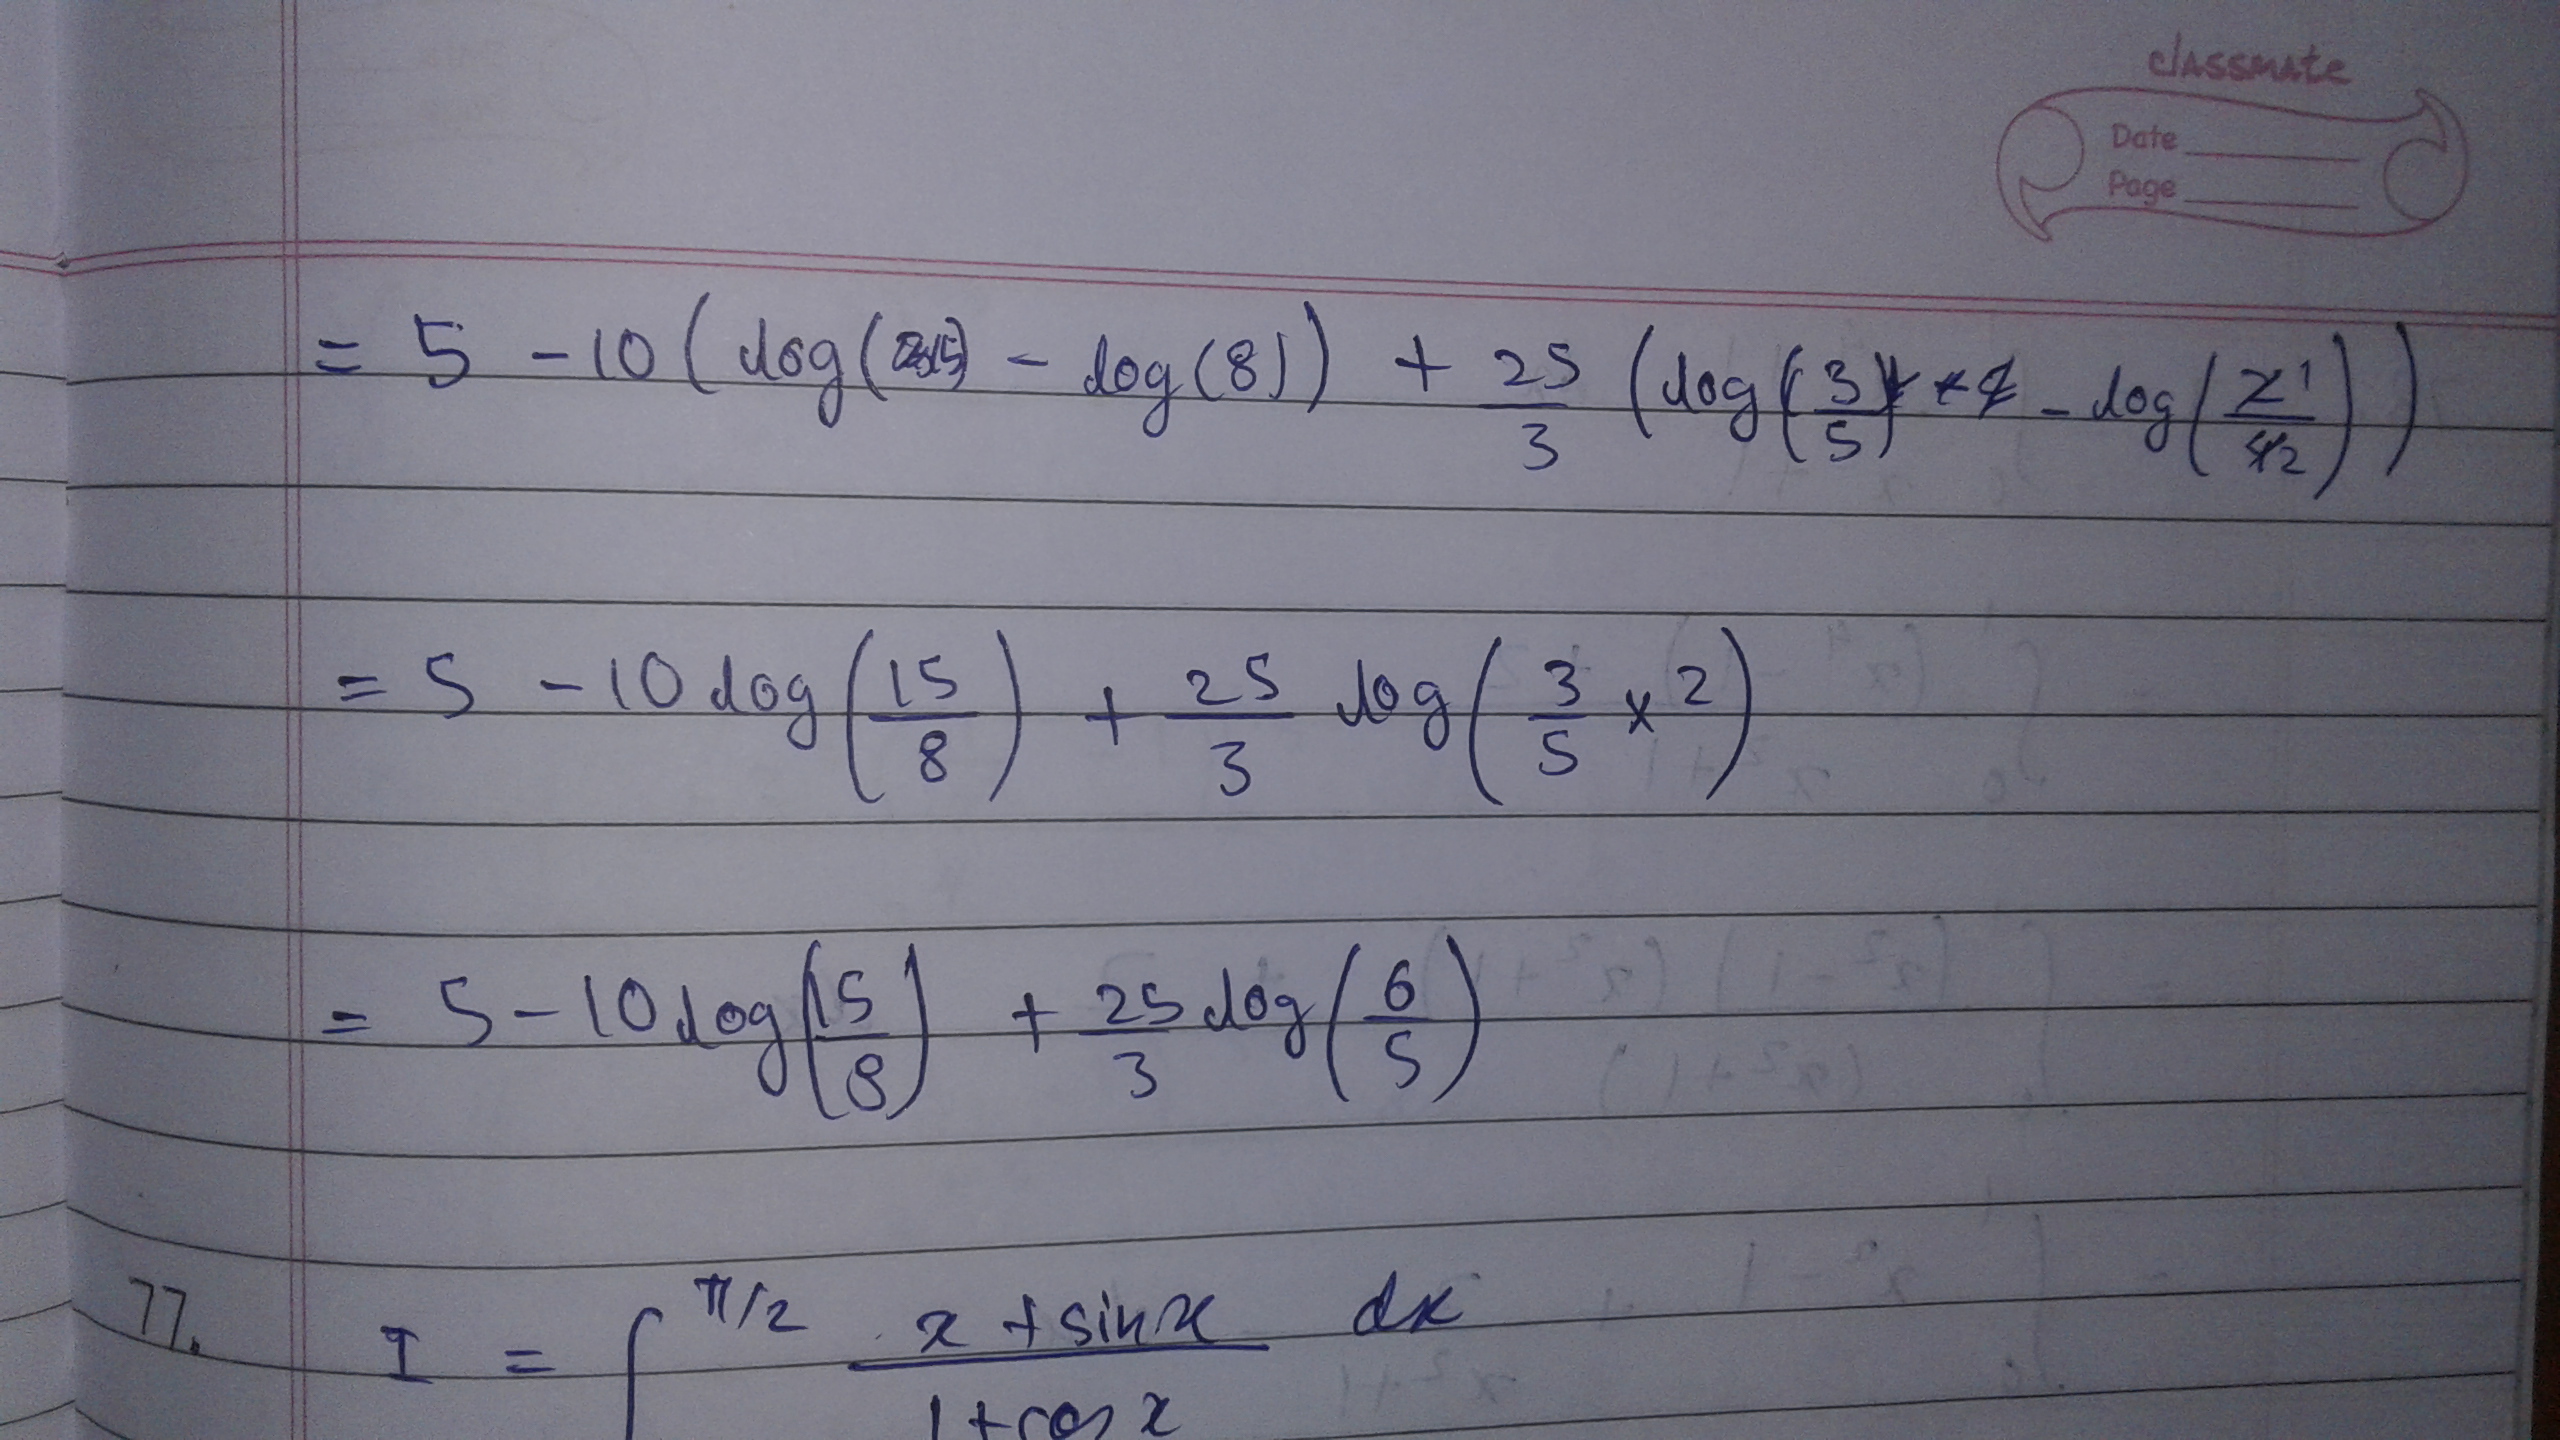 classmate
Date
Page
= 5 - 10 ( log(15) - log(8) ) + 25/3 ( log(3/5) - log(1/2) )
= 5 - 10 log(15/8) + 25/3 log(3/5 × 2)
= 5 - 10 log(15/8) + 25/3 log(6/5)
77. I = ∫ π/2 x + sin x / 1 + cos x dx